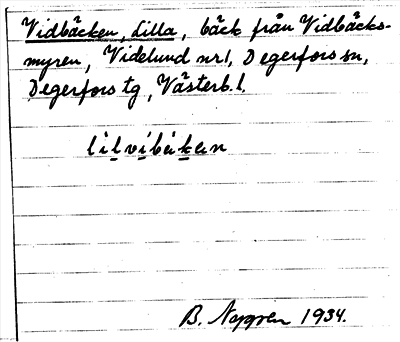 Vidbäcken, Lilla, bäck från Vidbäcks-
myren, Videlund nr 1, Degerfors sn,
Degerfors tg, Västerb. l.
lilvibäken
B. Nygren 1934.